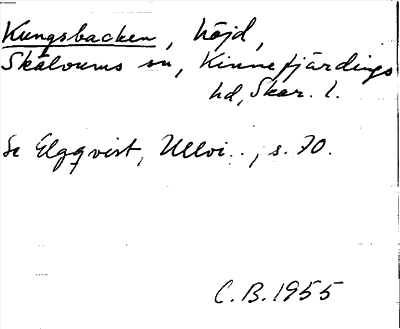 Kungsbacken, höjd,
Skälvums sn, Kinnefjärdings
hd, Skar. l.
Se Elgqvist, Ullvi.., s. 70.
C.B. 1955